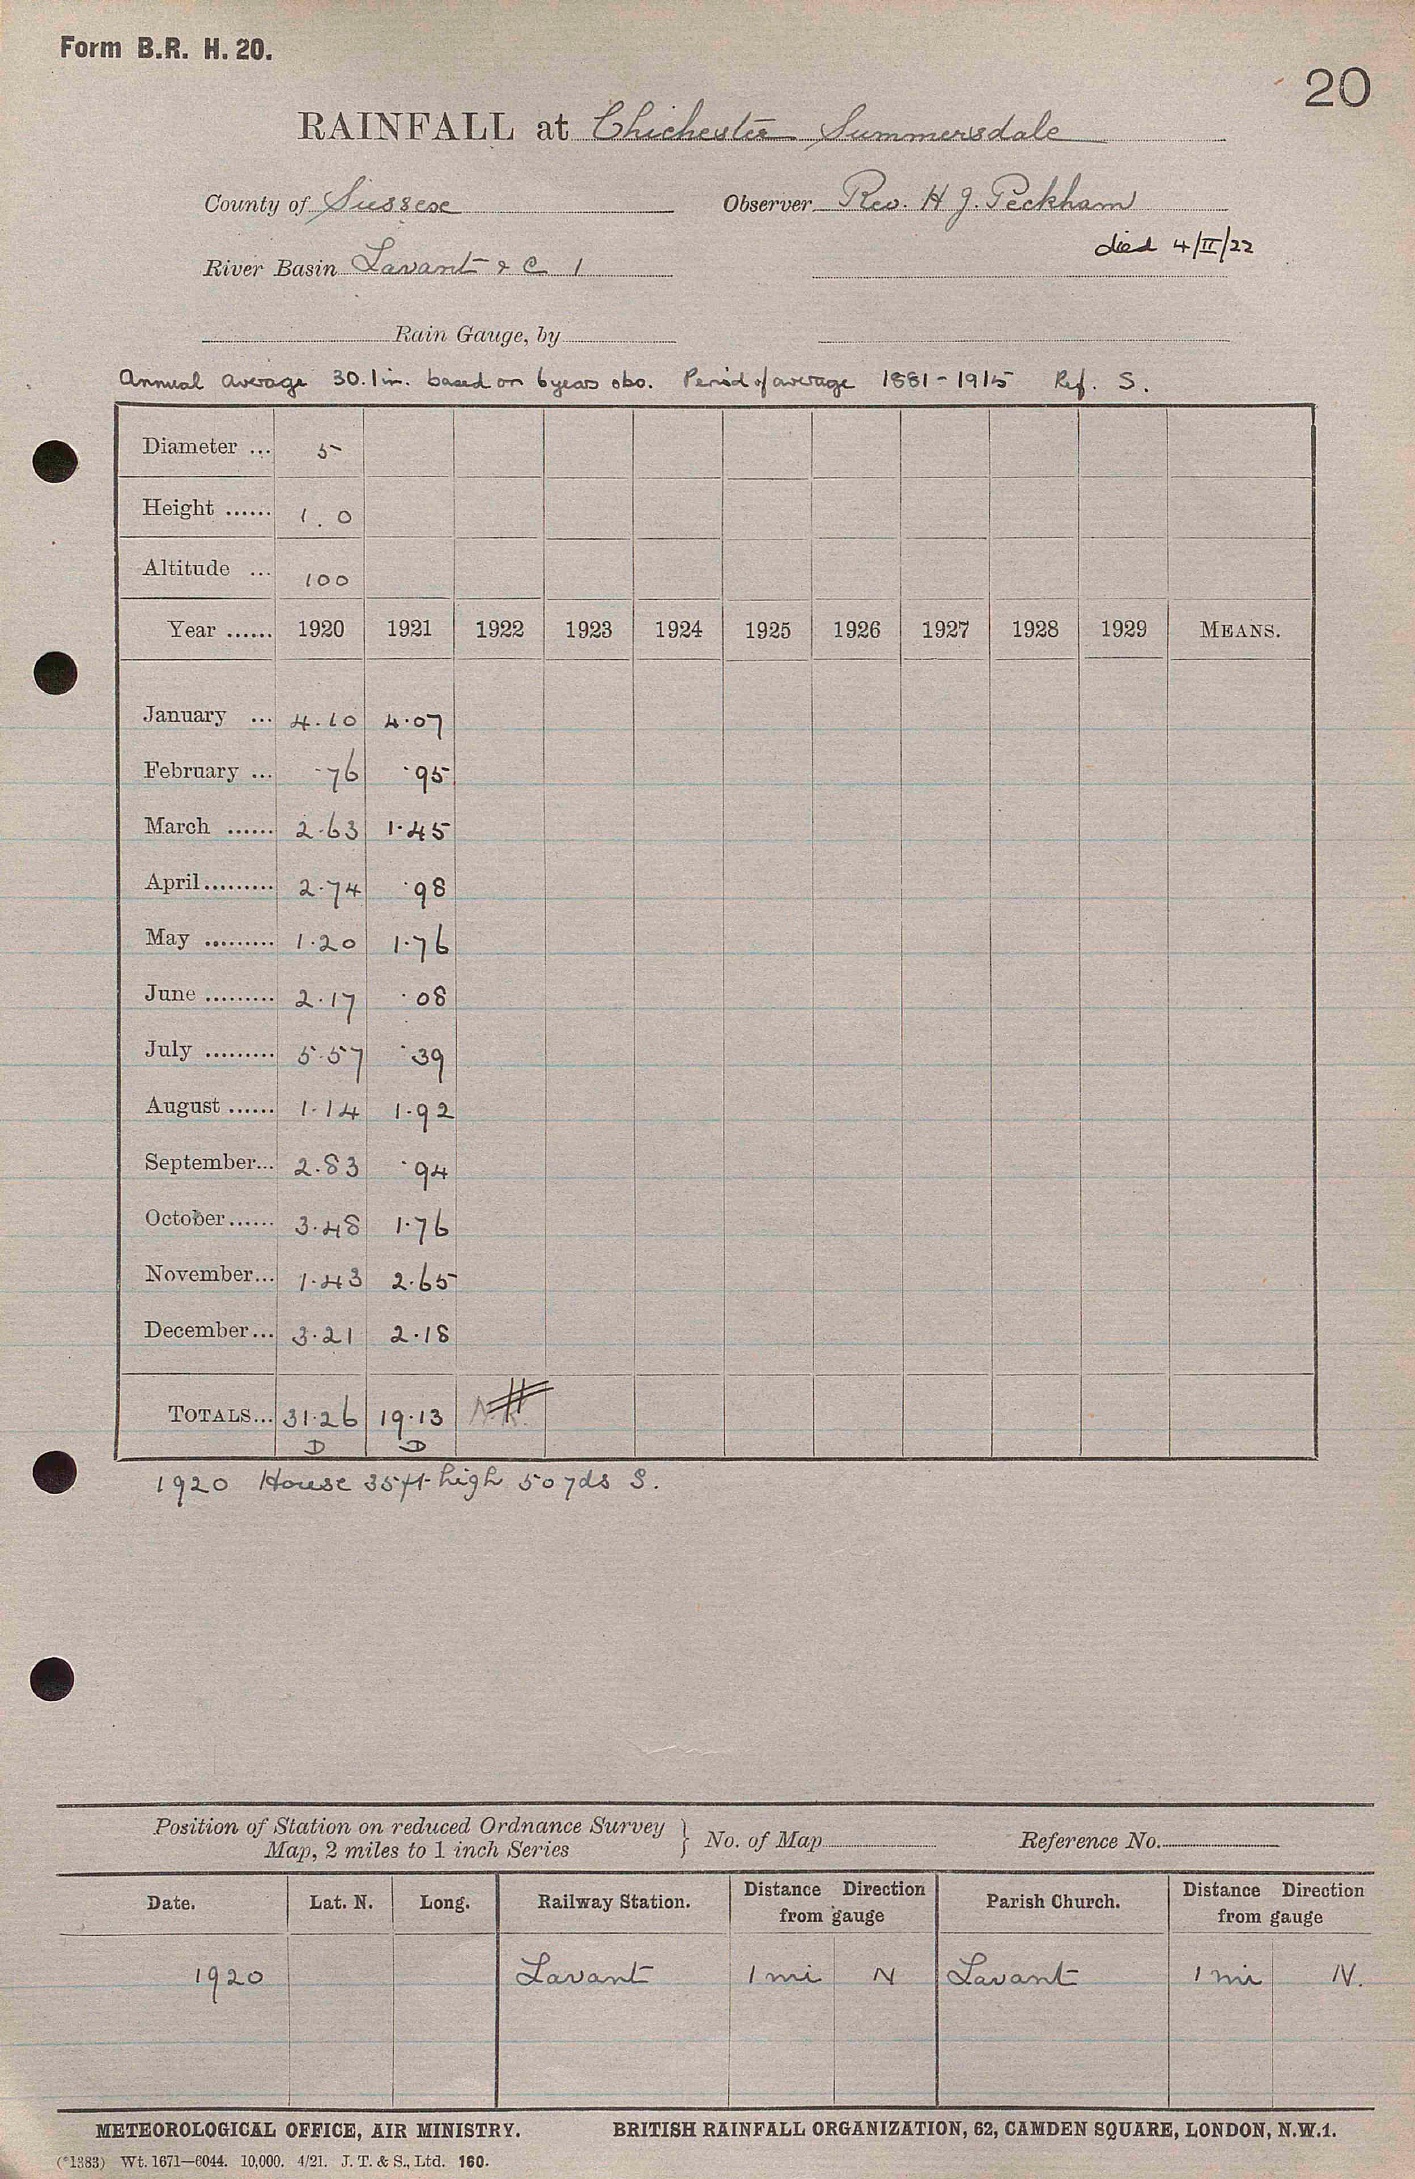 Form B.R. H. 20.
20
RAINFALL at Chichester Summersdale
County of Sussex Observer Rev. H J. Peckham
died 4/II/22
River Basin Lavant & C 1
Rain Gauge, by
Annual average 30.1 in. based on 6 years obs. Period of average 1881-1915 Ref. S.
Diameter ... 5
Height ...... 1.0
Altitude ... 100
Year ...... 1920 1921 1922 1923 1924 1925 1926 1927 1928 1929 MEANS.
January ... 4.10 4.07
February ... .76 .95
March ...... 2.63 1.45
April ......... 2.74 .98
May ......... 1.20 1.76
June ......... 2.17 .08
July ......... 5.57 .39
August ...... 1.14 1.92
September... 2.83 .94
October ...... 3.48 1.76
November... 1.43 2.65
December... 3.21 2.18
TOTALS... 31.26 19.13
D D
1920 House 35ft high 50 yds S.
Position of Station on reduced Ordnance Survey
Map, 2 miles to 1 inch Series } No. of Map Reference No.
Date. Lat. N. Long. Railway Station. Distance Direction from gauge Parish Church. Distance Direction from gauge
1920 Lavant 1 mi N Lavant 1 mi N.
METEOROLOGICAL OFFICE, AIR MINISTRY. BRITISH RAINFALL ORGANIZATION, 62, CAMDEN SQUARE, LONDON, N.W.1.
(*1383) Wt. 1671—6044. 10,000. 4/21. J. T. & S., Ltd. 160.